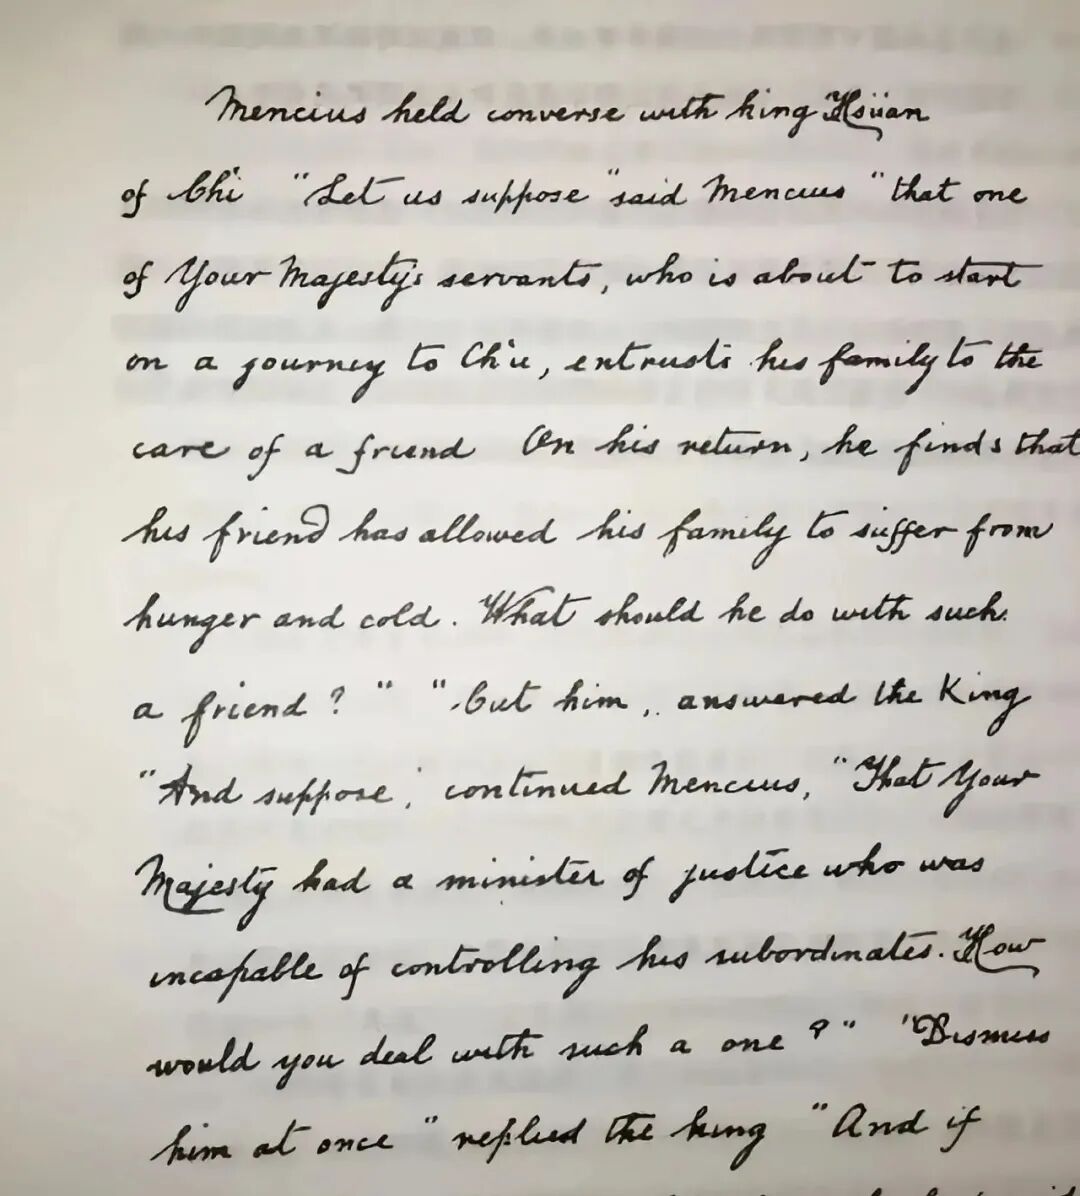 Mencius held converse with king Hsüan
of Chi "Let us suppose "said Mencius "that one
of Your Majesty's servants, who is about to start
on a journey to Ch'u, entrusts his family to the
care of a friend On his return, he finds that
his friend has allowed his family to suffer from
hunger and cold. What should he do with such
a friend?" "Cut him, answered the King
"And suppose', continued Mencius, "That Your
Majesty had a minister of justice who was
incapable of controlling his subordinates. How
would you deal with such a one?" "Dismiss
him at once" replied the king "And if